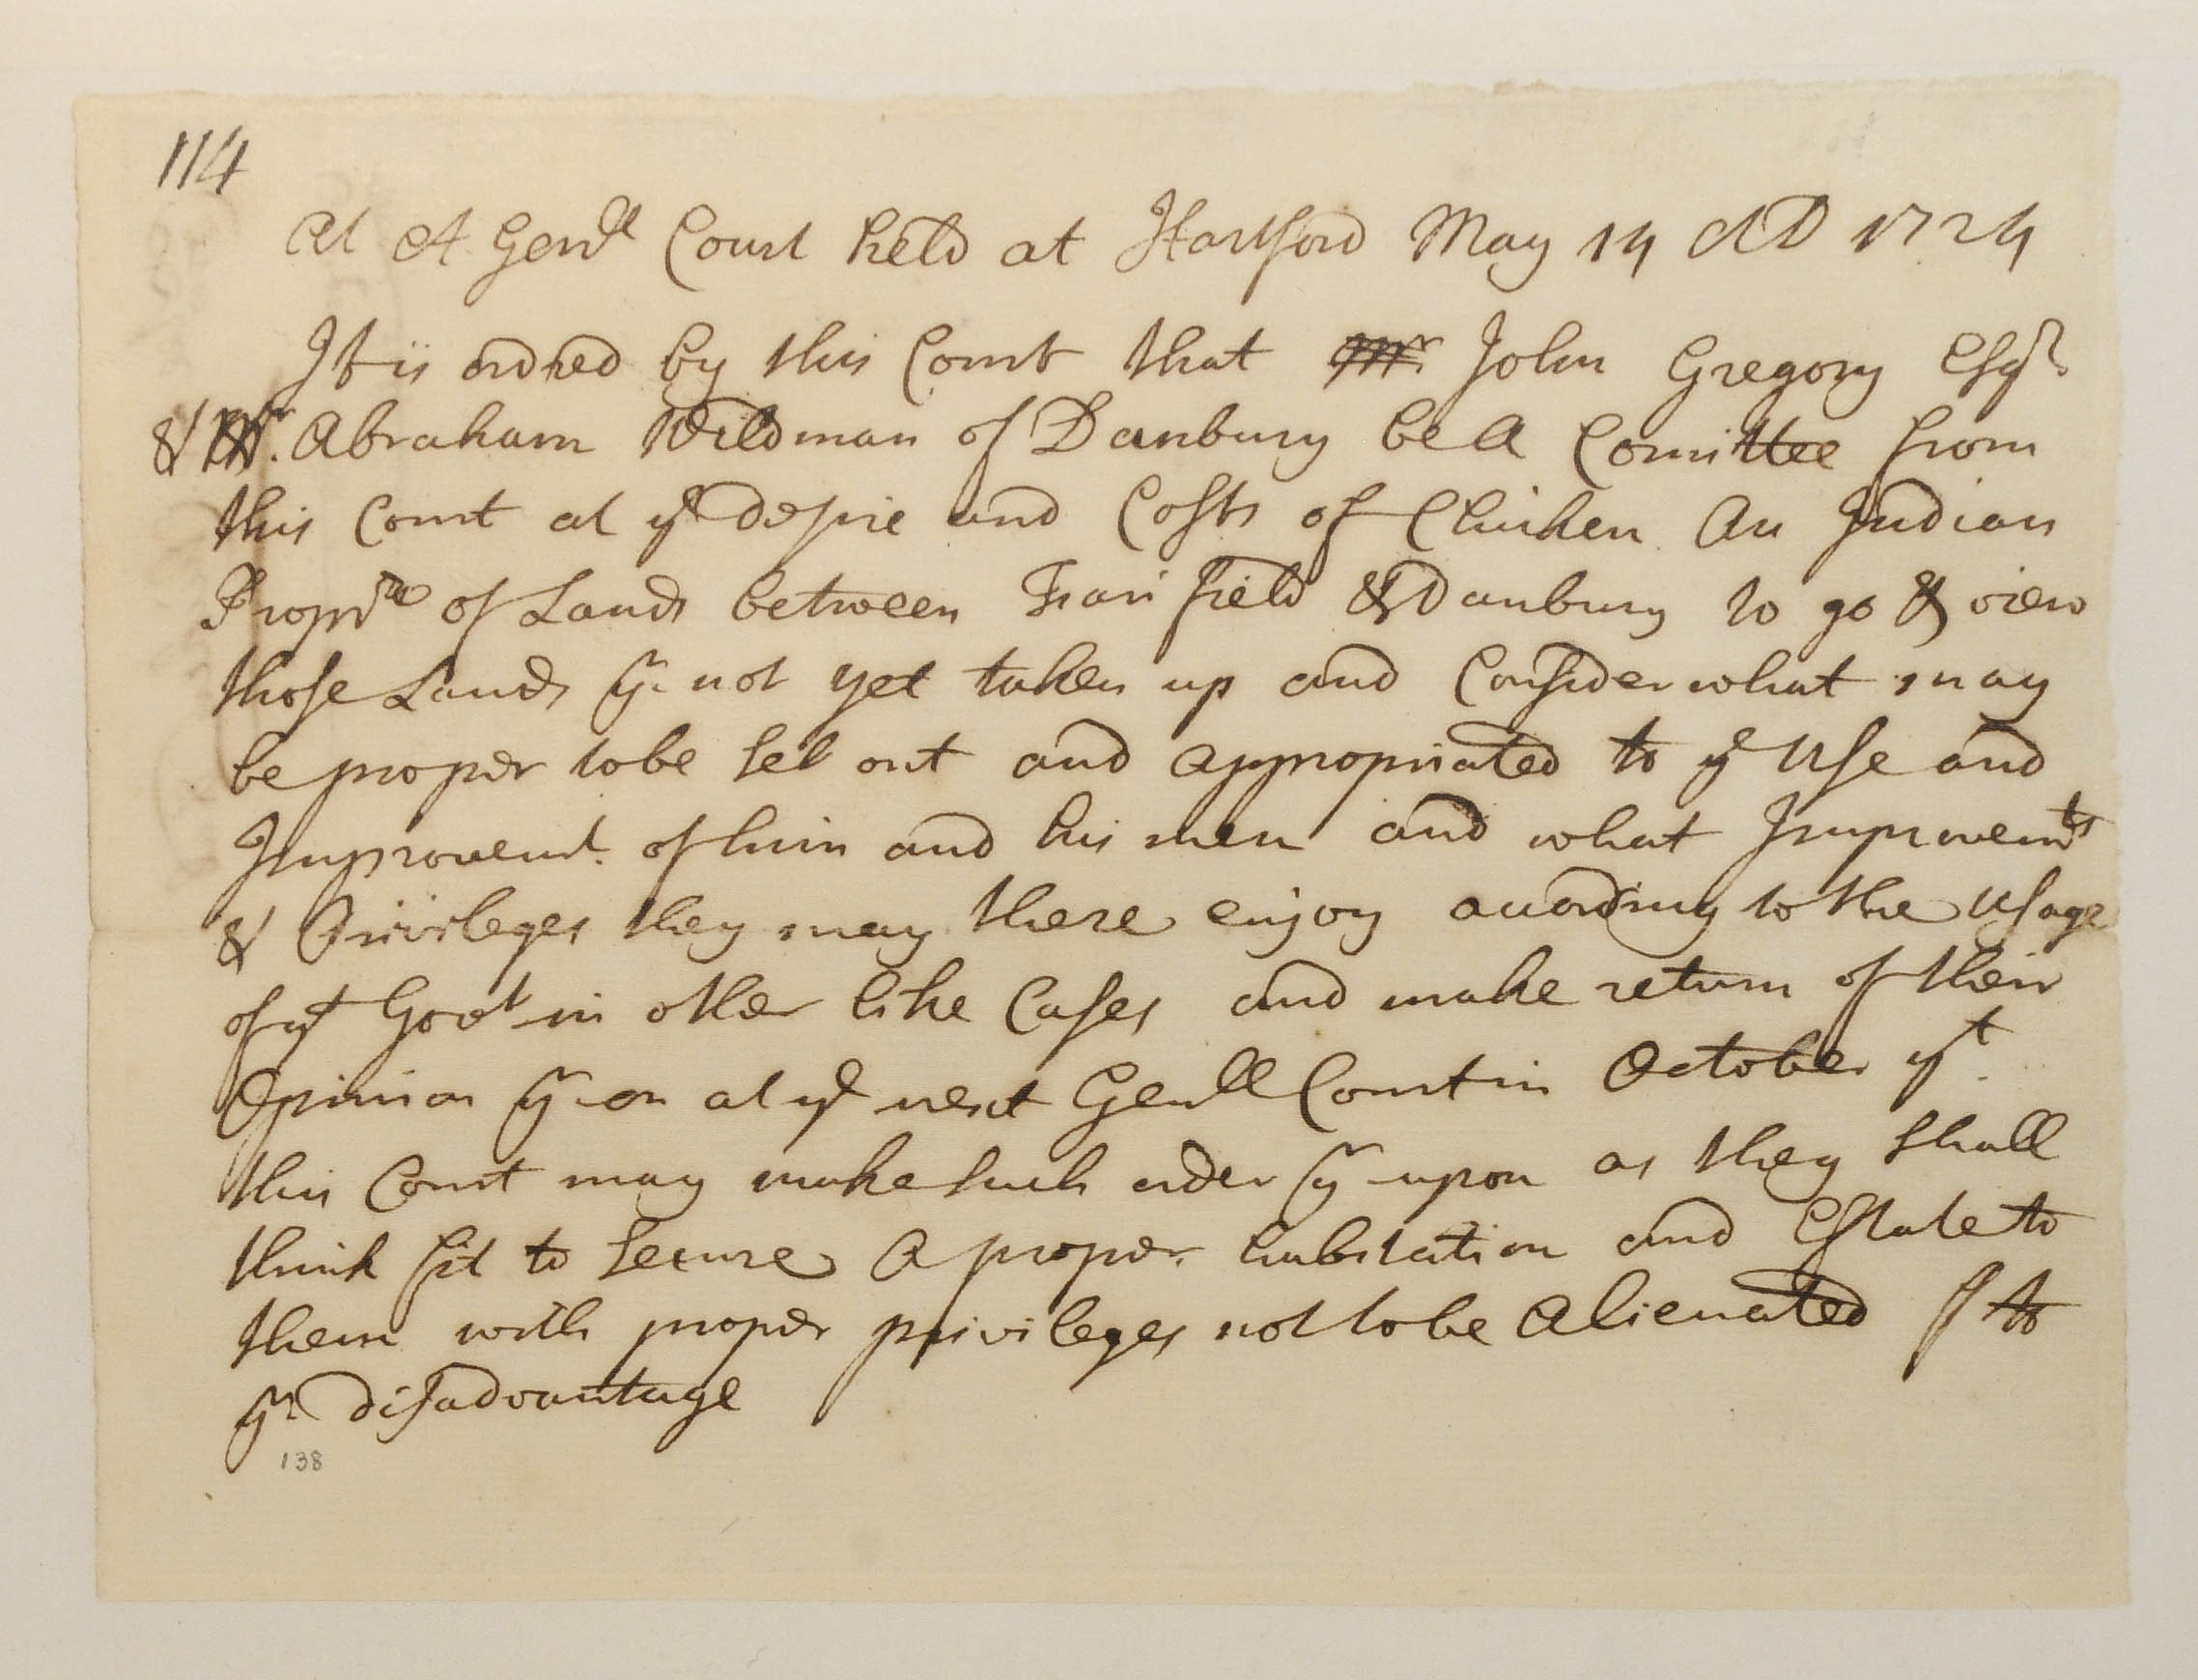 114
At A Genll Court held at Hartford May 14 AD 1724
It is ordred by this Court that Mr John Gregory Esqr
& Mr. Abraham Wildman of Danbury be A Comittee from
this Court at ye desire and Costs of Chicken An Indian
Proprr of Lands between Fairfield & Danbury to go & view
those Lands yr. not yet taken up and Consider what may
be proper to be set out and appropriated to ye Use and
Improvemt. of him and his men and what Improvemts
& Priivileges they may there enjoy according to the Usage
of ys Govt in other like Cases and make return of their
Opinion yr on at ye next Genll Court in October yt.
this Court may make such order yr upon as they shall
think fit to secure A proper habitation and Estate to
them with proper privileges not to be Alienated to
yr. disadvantage
138